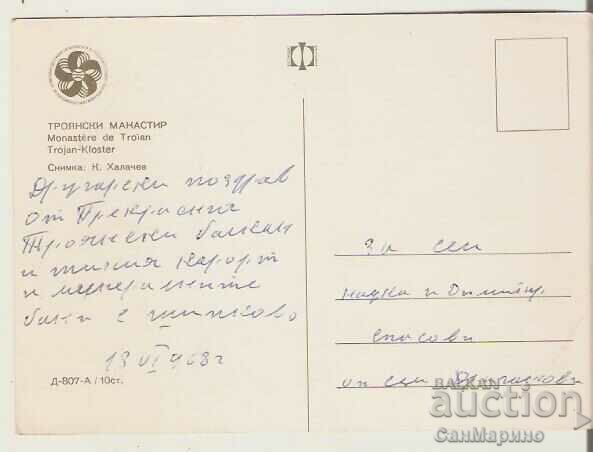 ТРОЯНСКИ МАНАСТИР
Monastère de Troïan
Trojan-Kloster
Снимка: К. Халачев
Другарски поздрав
от Прекрасния
Троянски балкан
и тихия курорт
и минералните
бани с. Шипково
13 VI 968 г
Д-807-А / 10ст.
За сем
и Димитър
Спасови
BALKAN
auction
СанМарино